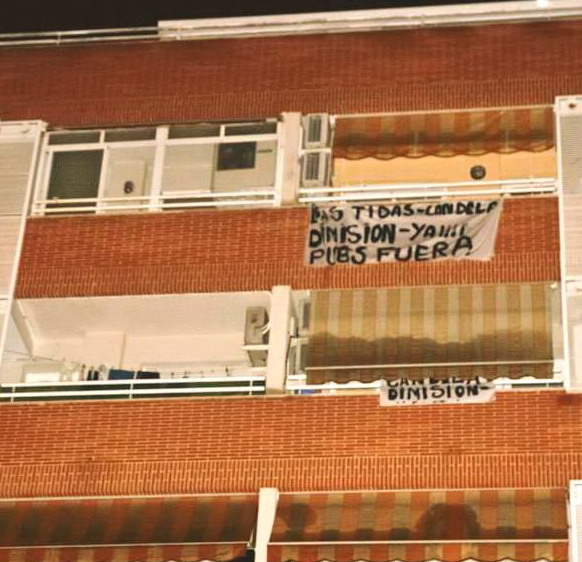 BASTIDAS-CANDELA
DIMISION-YA!!!
PUBS FUERA
CANDELA
DIMISION-